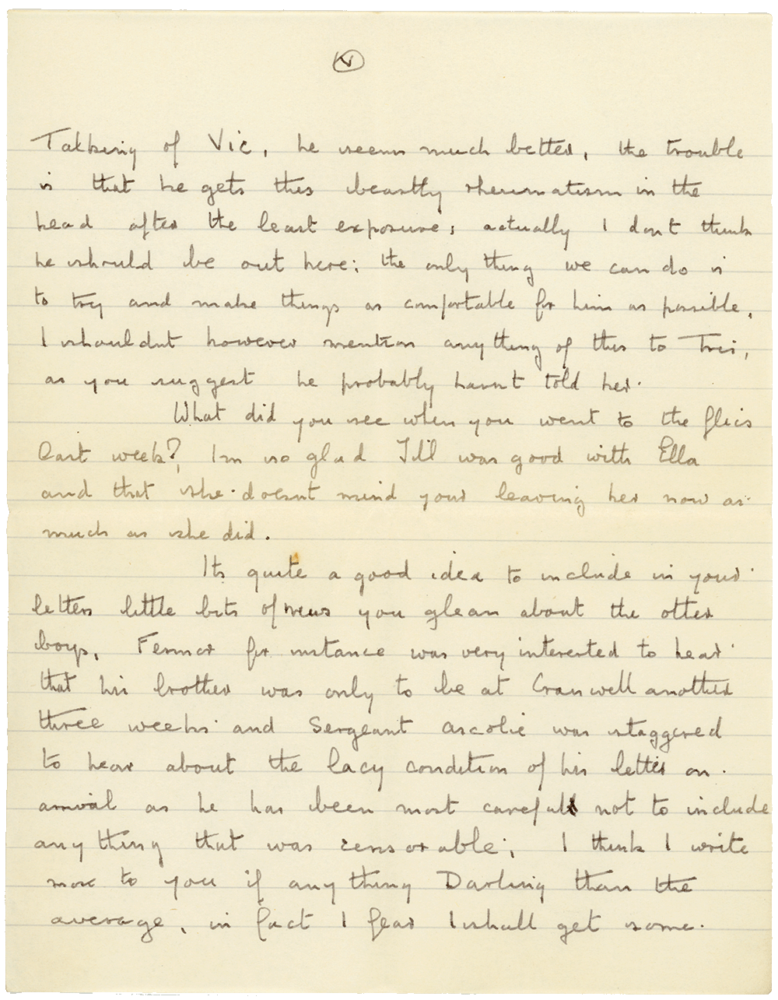 V
Talking of Vic, he seems much better, the trouble
is that he gets this beastly rheumatism in the
head after the least exposure; actually I dont think
he should be out here; the only thing we can do is
to try and make things as comfortable for him as possible,
I shouldnt however mention anything of this to Tris,
as you suggest he probably hasnt told her.
What did you see when you went to the flics
last week?, Im so glad Jill was good with Ella
and that she doesnt mind your leaving her now as
much as she did.
Its quite a good idea to include in your
letters little bits of news you glean about the other
boys, Fennor for instance was very interested to hear
that his brother was only to be at Cranwell another
three weeks and Sergeant Ascolie was staggered
to hear about the lacy condition of his letter on
arrival as he has been most careful not to include
anything that was censorable; I think I write
more to you if anything Darling than the
average, in fact I fear I shall get some.